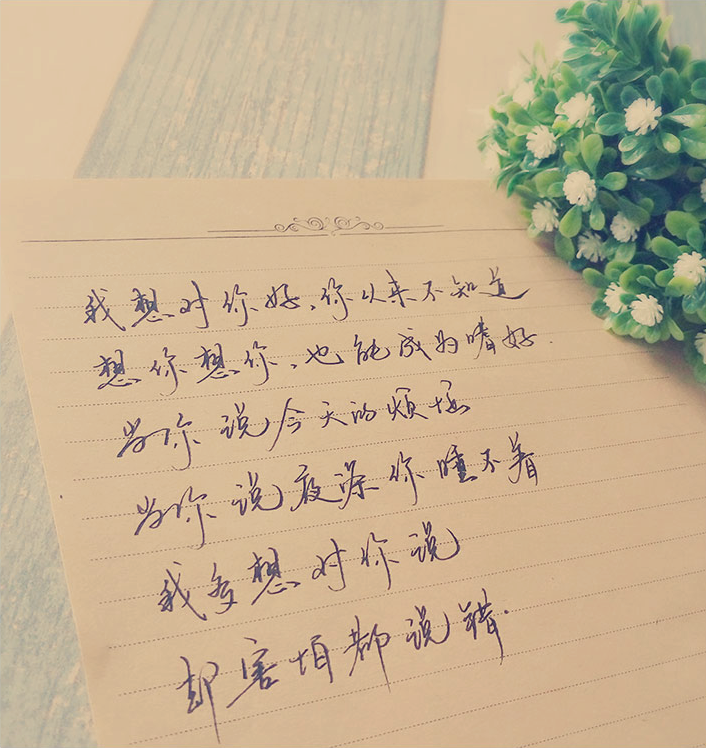 我想对你好,你从来不知道
想你想你,也能成为嗜好.
当你说今天的烦恼
当你说夜深你睡不着
我多想对你说
却害怕都说错.